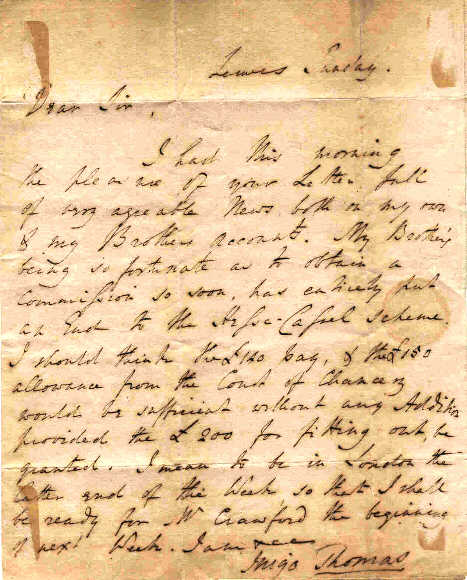 Lewes Sunday.
Dear Sir,
I had this morning
the pleasure of your Letter, full
of very agreable News both on my own
& my Brothers account. My Brother's
being so fortunate as to obtain a
Commission so soon, has entirely put
an End to the Hesse-Cassel Scheme.
I should think the £140 pay, & the £150
allowance from the Court of Chancery
would be sufficient without any Addition
provided the £200 for fitting out, be
granted. I mean to be in London the
latter end of the Week, so that I shall
be ready for Mr Crawford the beginning
of next Week. I am
Inigo Thomas